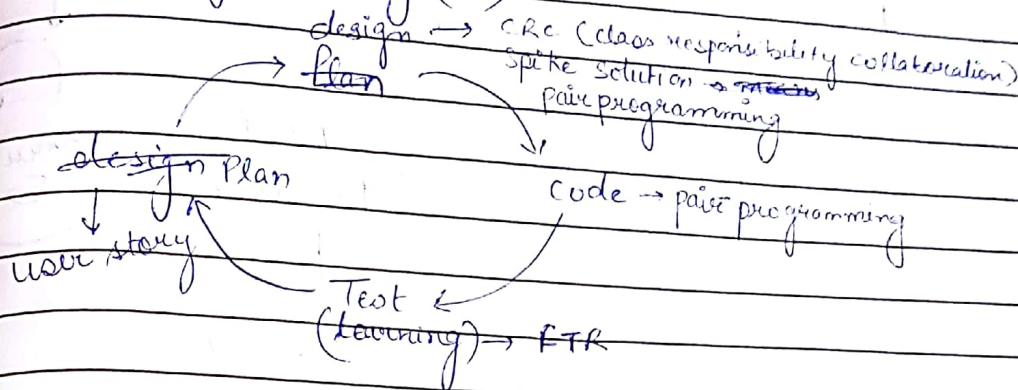 design → CRC (class responsibility collaboration)
Plan
spike solution →
pair programming
design Plan
code → pair programming
user story
Test
(Learning) → FTR